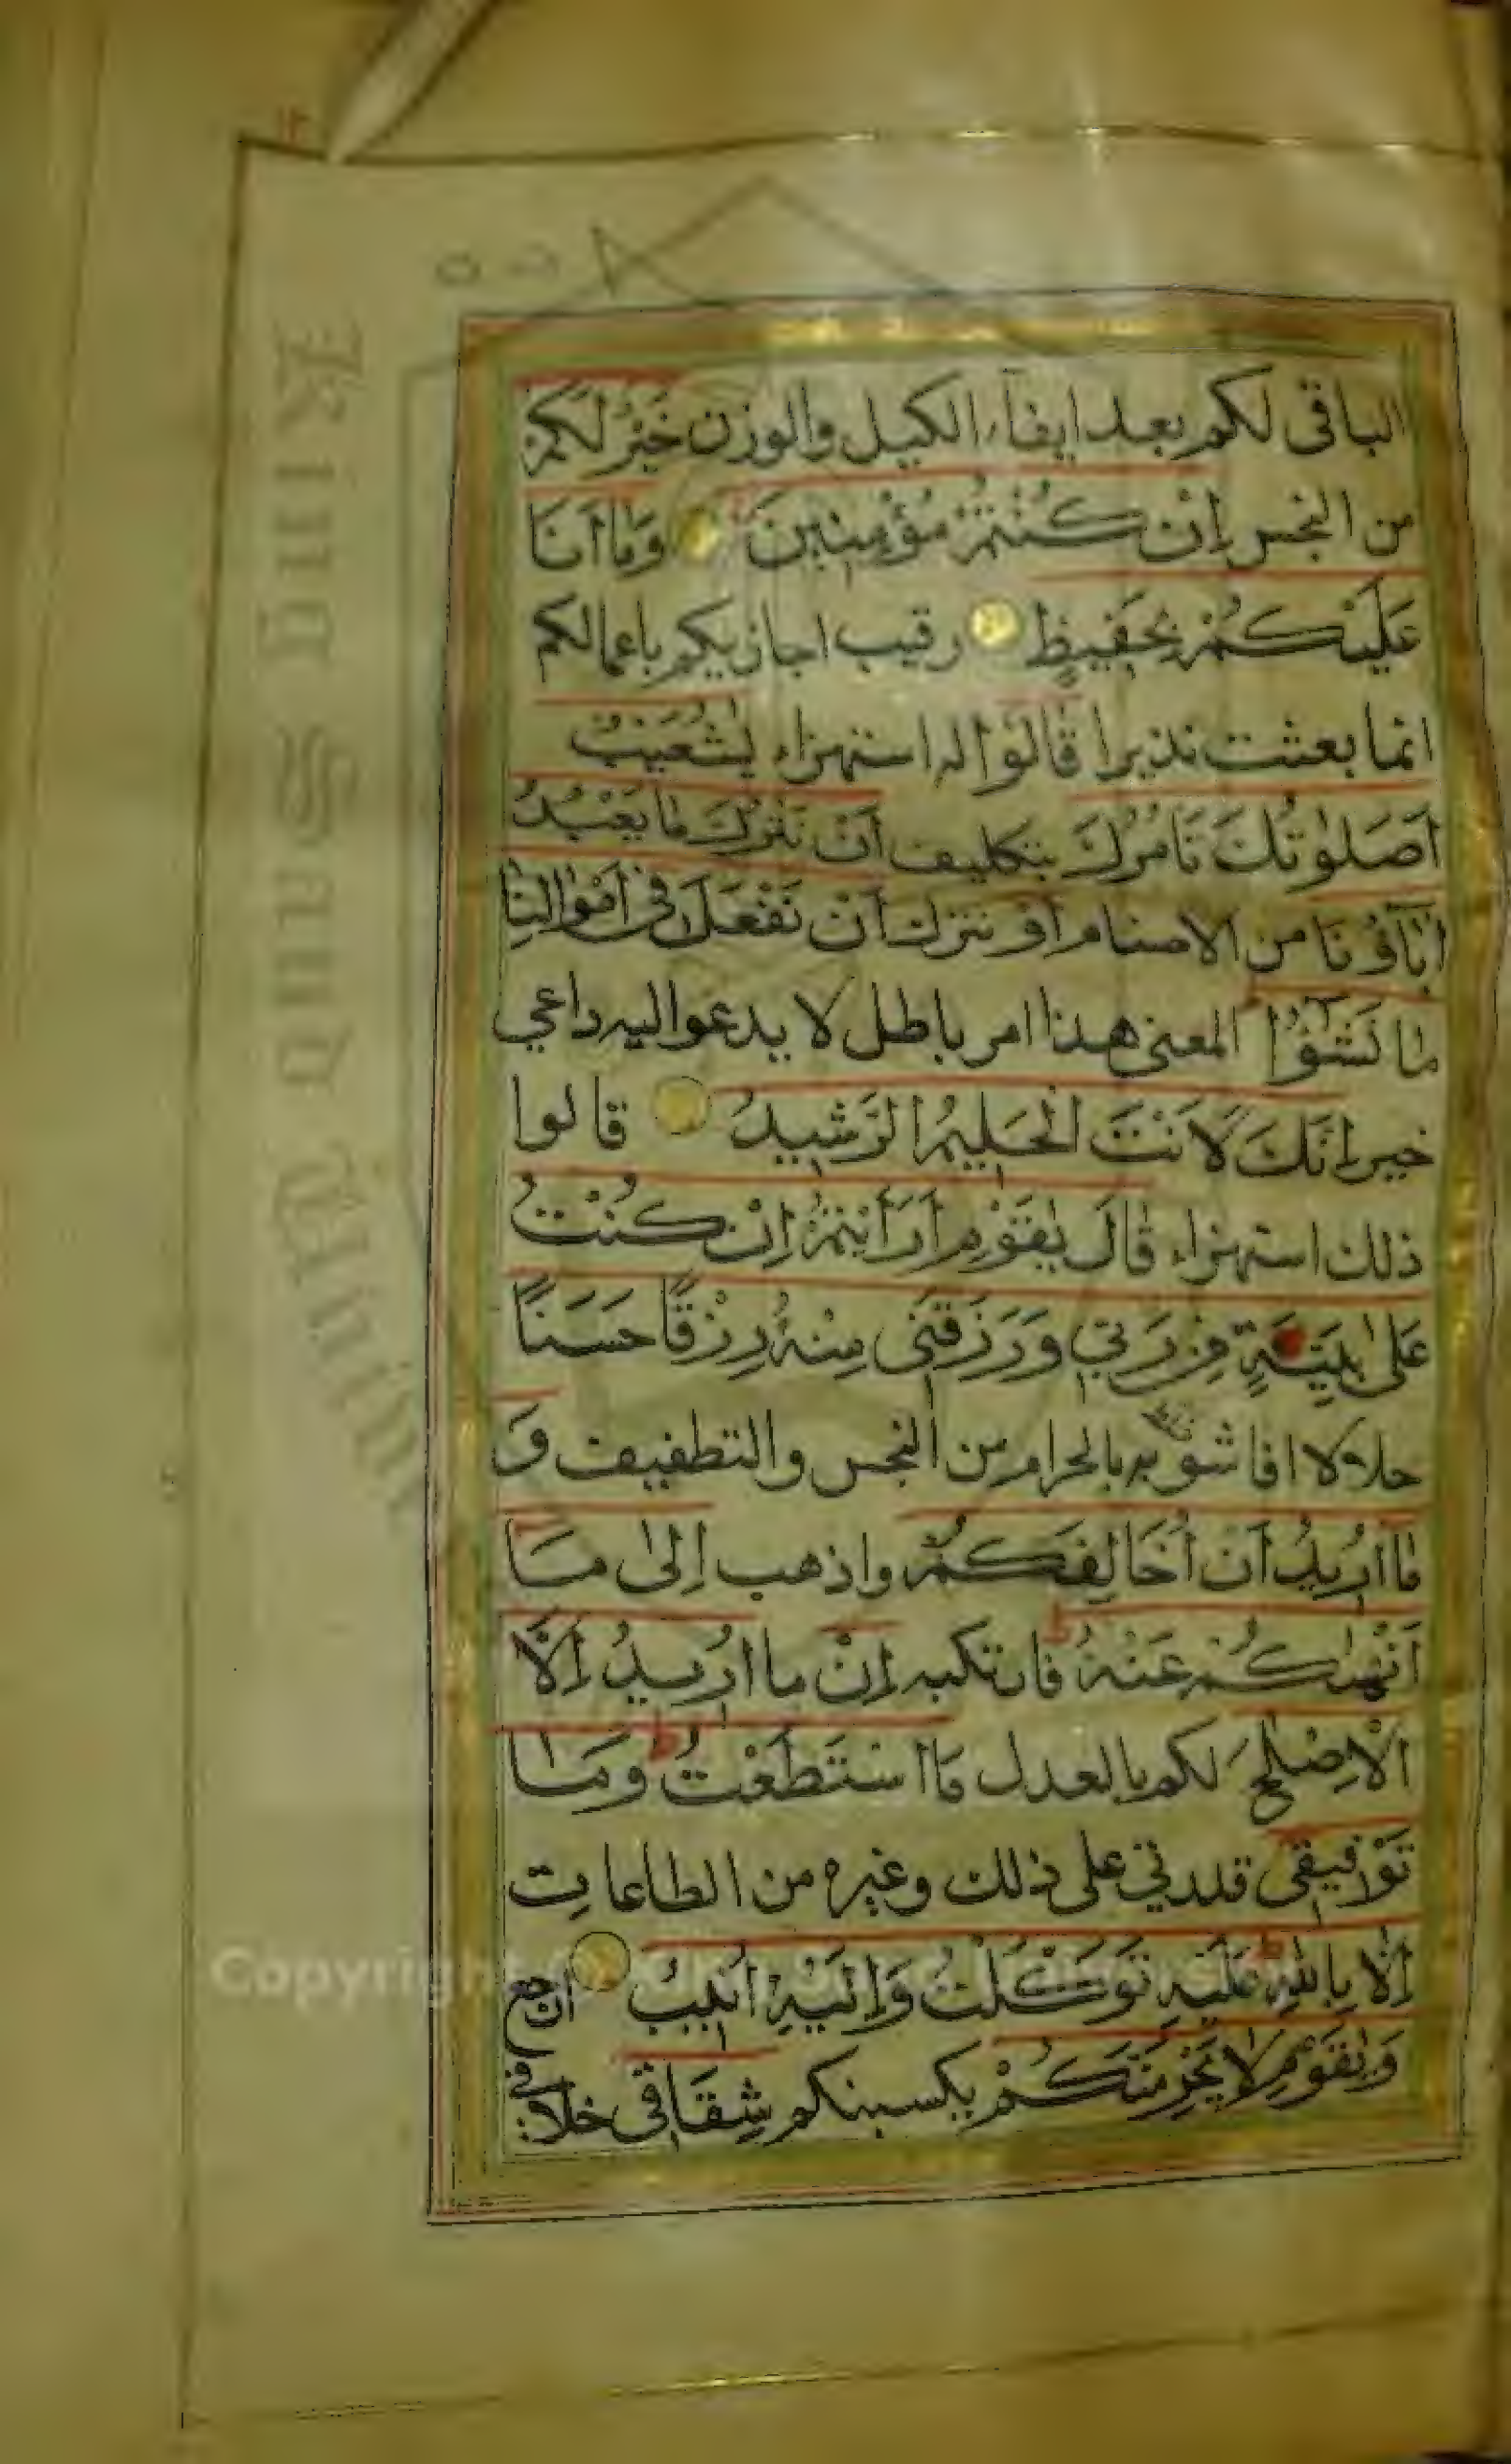 الباقى لكم بعد ايفاء الكيل والوزن خَيْرٌ لَكُمْ
من البخس اِنْ كُنْتُمْ مُؤْمِنِينَ وَمَا اَنَا
عَلَيْكُمْ بِحَفِيظٍ رقيب اجازيكم باعمالكم
انما بعثت نذيرا قَالُوا له استهزاء يٰشُعَيْبُ
اَصَلٰوتُكَ تَاْمُرُكَ بتكليف اَنْ نَتْرُكَ مَا يَعْبُدُ
اٰبَآؤُنَا من الاصنام اَوْ نترك اَنْ نَفْعَلَ فِى اَمْوَالِنَا
مَا نَشٰٓؤُا المعنى هذا امر باطل لا يدعوا اليه داعي
خير اِنَّكَ لَاَنْتَ الْحَلِيمُ الرَّشِيدُ قالوا
ذلك استهزاء قَالَ يٰقَوْمِ اَرَاَيْتُمْ اِنْ كُنْتُ
عَلٰى بَيِّنَةٍ مِنْ رَبِّي وَرَزَقَنِى مِنْهُ رِزْقًا حَسَنًا
حلالا افاشوبه بالحرام من البخس والتطفيف وَ
مَا اُرِيدُ اَنْ اُخَالِفَكُمْ واذهب اِلٰى مَا
اَنْهٰىكُمْ عَنْهُ فارتكبه اِنْ ما اُرِيدُ اِلَّا
الْاِصْلٰحَ لكم بالعدل مَا اسْتَطَعْتُ وَمَا
تَوْفِيقِى قدرتي على ذلك وغيره من الطاعات
اِلَّا بِاللّٰهِ عَلَيْهِ تَوَكَّلْتُ وَاِلَيْهِ اُنِيبُ ارجع
وَيٰقَوْمِ لَا يَجْرِمَنَّكُمْ يكسبنكم شِقَاقِى خلافي
King Saud
Copyright